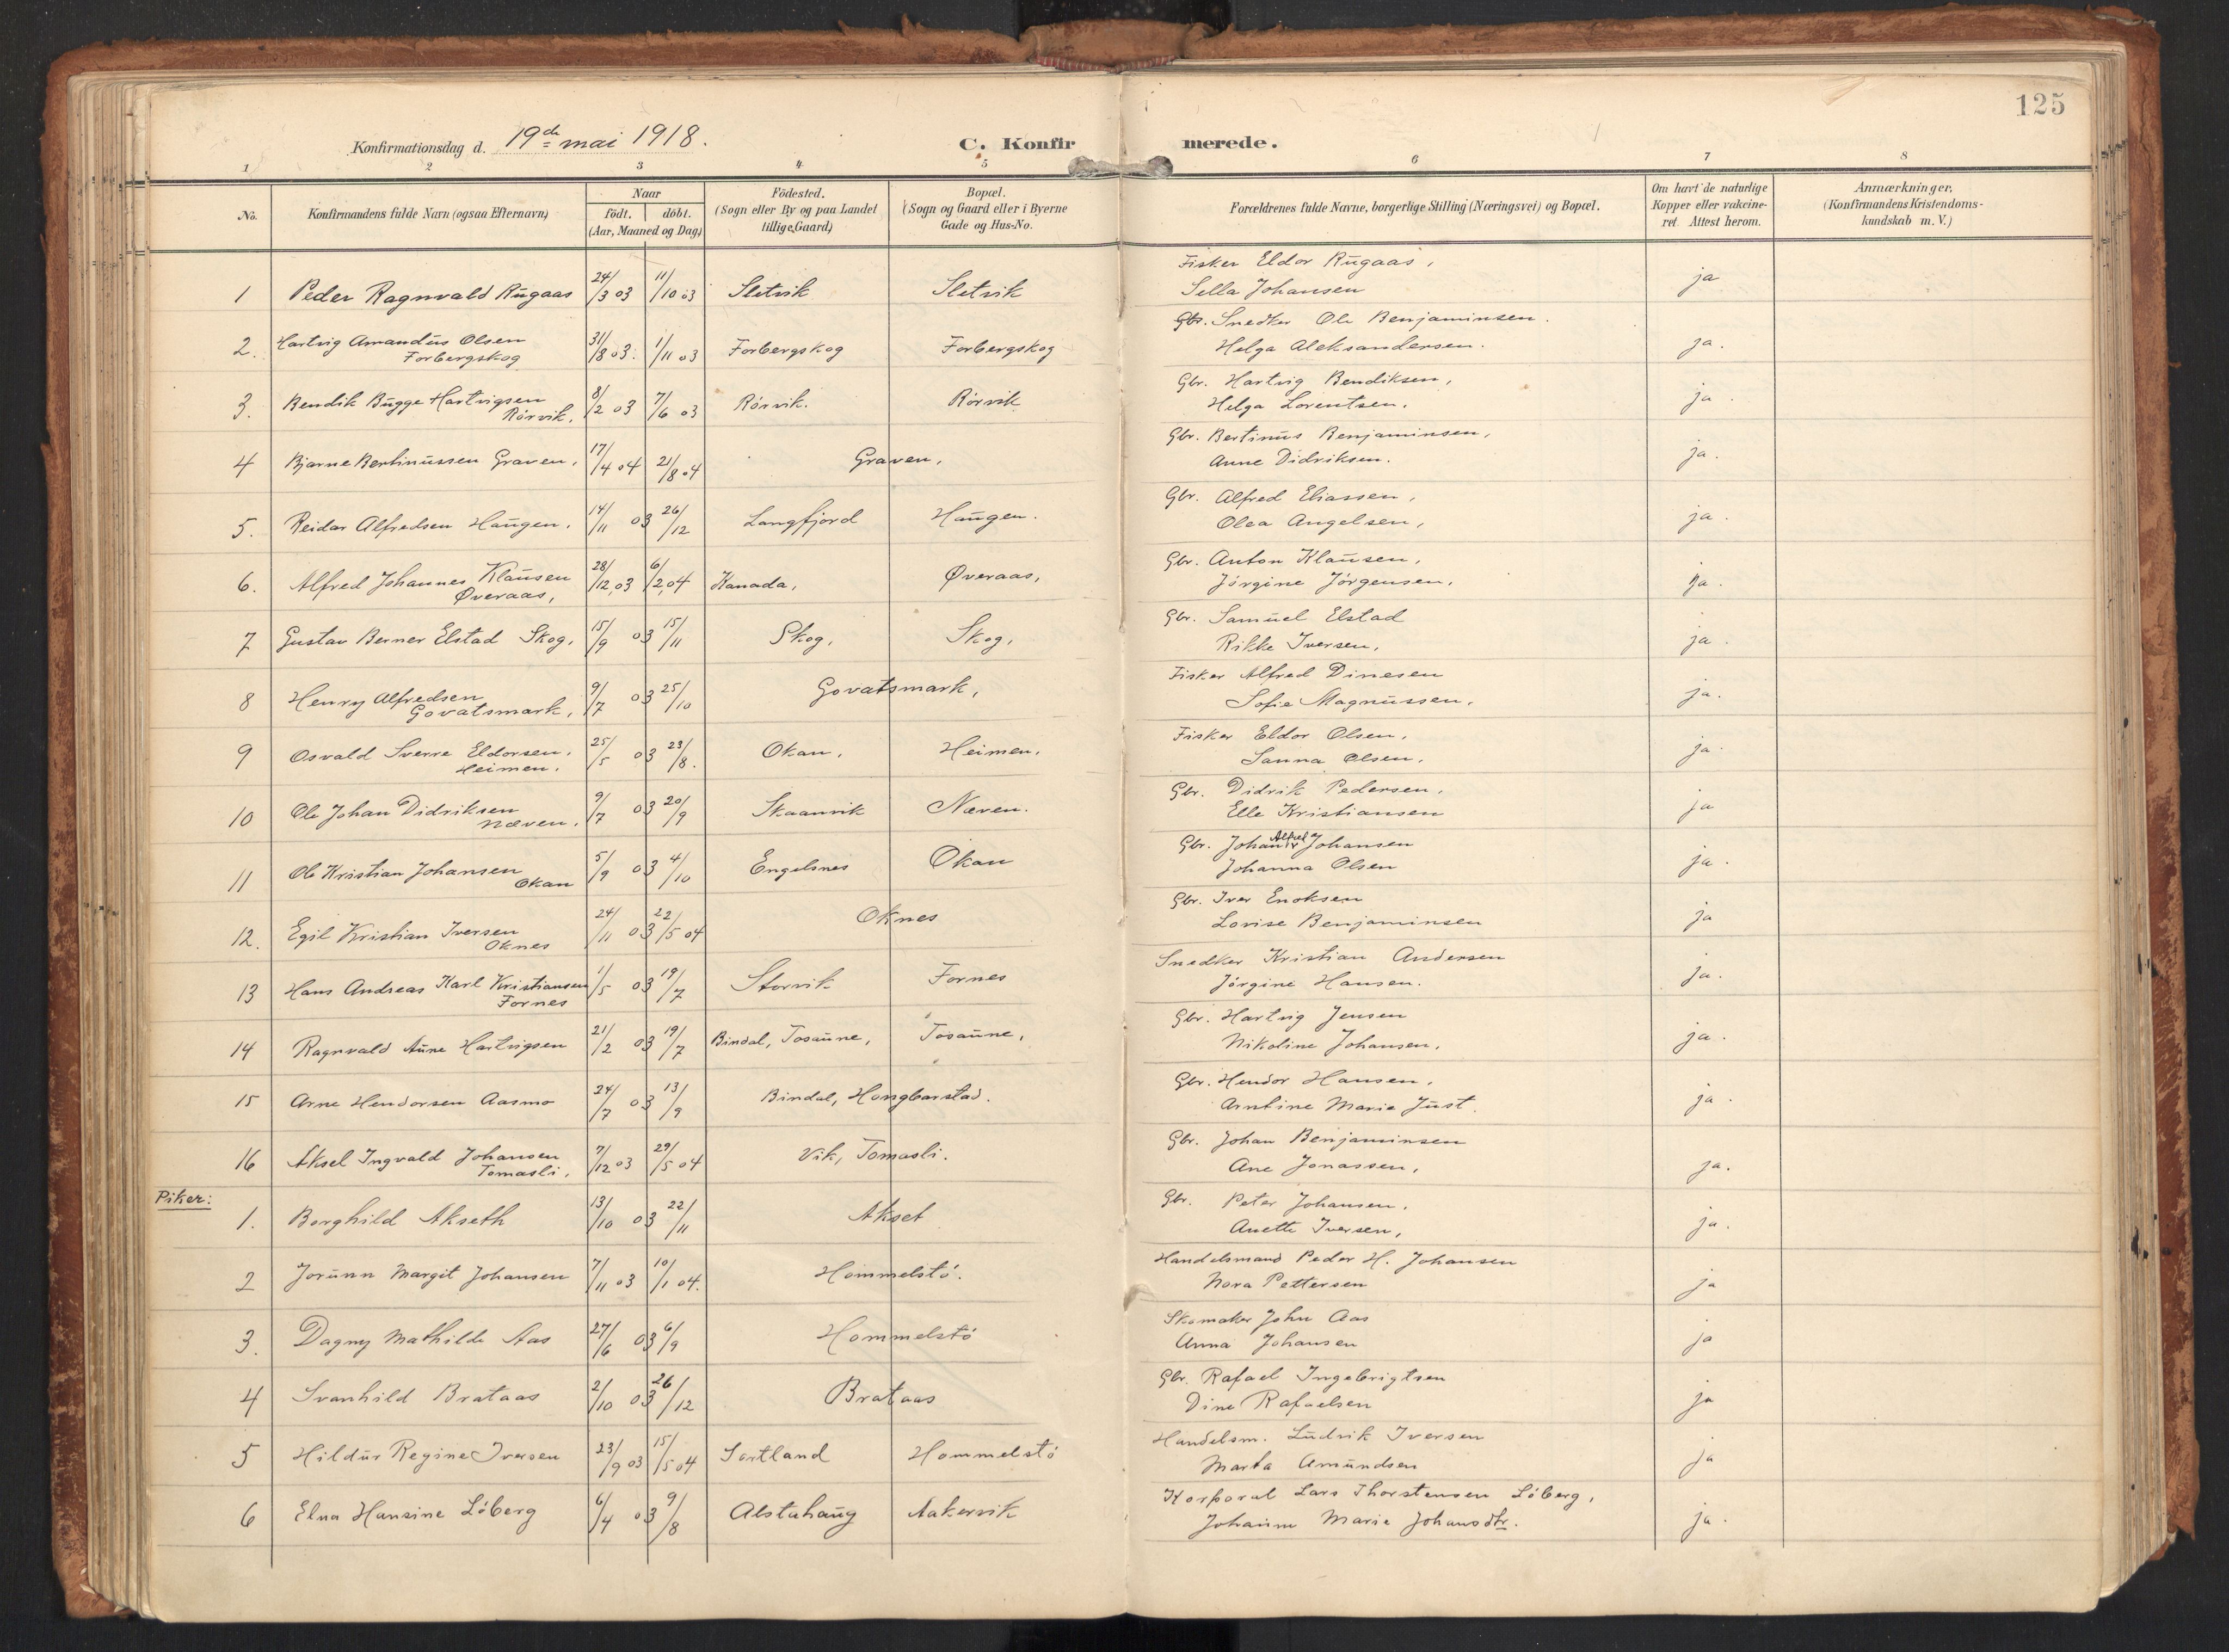 125
Konfirmationsdag d. 19de mai 1918. C. Konfirmerede.
1 2 3 4 5 6 7 8
No. Konfirmandens fulde Navn (ogsaa Efternavn) Naar födt. döbt. (Aar, Maaned og Dag) Födested. (Sogn eller By og paa Landet tillige Gaard) Bopæl. (Sogn og Gaard eller i Byerne Gade og Hus-No. Forældrenes fulde Navne, borgerlige Stilling (Næringsvei) og Bopæl. Om havt de naturlige Kopper eller vakcineret. Attest herom. Anmærkninger, (Konfirmandens Kristendomskundskab m. V.)
1 Peder Ragnvald Rugaas 24/3 03 11/10 03 Sletvik Sletvik Fisker Eldor Rugaas, Sella Johansen ja
2. Hartvig Amandus Olsen Forbergskog 31/8 03. 1/11 03 Forbergskog Forbergskog Gbr. Snedker Ole Benjaminsen. Helga Aleksandersen. ja.
3. Bendik Bugge Hartvigsen Rörvik. 8/2 03 7/6 03 Rörvik. Rörvik Gbr. Hartvig Bendiksen, Helga Lorentsen. ja.
4 Bjarne Bertinussen Graven, 17/4 04 21/8 04 Graven, Gbr. Bertinus Benjaminsen, Anne Didriksen. ja.
5. Reidar Alfredsen Haugen. 14/11 03 26/12 Langfjord Haugen. Gbr. Alfred Eliassen, Olea Angelsen, ja.
6. Alfred Johannes Klausen Øveraas, 28/12, 03 6/2, 04 Kanada, Øveraas, Gbr. Anton Klausen, Jörgine Jörgensen, ja.
7 Gustav Berner Elstad Skog. 15/9 03 15/11 Skog, Skog, Gbr. Samuel Elstad Rikke Iversen, ja.
8 Henry Alfredsen Govatsmark, 9/7 03 25/10 Govatsmark, Fisker Alfred Dinesen Sofie Magnussen, ja.
9 Osvald Sverre Eldorsen. Heimen. 25/5 03 23/8. Okan, Heimen. Fisker Eldor Olsen, Sanna Olsen, ja.
10 Ole Johan Didriksen Næven. 9/7 03 20/9 Skaanvik Næven. Gbr. Didrik Pedersen, Elle Kristiansen ja
11 Ole Kristian Johansen Okan 5/9 03 4/10 Engelsnes Okan Gbr. Johan Alfred Johansen Johanna Olsen ja.
12. Egil Kristian Iversen Oknes 24/11 03 22/5 04 Oknes Gbr. Iver Enoksen Lovise Benjaminsen ja
13 Hans Andreas Karl Kristiansen Fornes 1/5 03 19/7 Storvik Fornes Snedker Kristian Andersen Jörgine Hansen. ja.
14 Ragnvald Aune Hartvigsen 21/2 03 19/7 Bindal, Tosaune, Tosaune, Gbr. Hartvig Jensen Nikoline Johansen, ja.
15 Arne Hendorsen Aasmo 24/7 03 13/9 Bindal, Hongbarstad. Gbr. Hendor Hansen, Arntine Marie Just. ja.
16 Aksel Ingvald Johansen Tomasli. 7/12 03 29/5 04 Vik, Tomasli. Gbr. Johan Benjaminsen Ane Jonassen, ja.
Piker:
1. Borghild Akseth 13/10 03 22/11 Akset Gbr. Peter Johansen, Anette Iversen, ja.
2 Jorunn Margit Johansen 7/11 03 10/1 04. Hommelstö. Handelsmand Peder H. Johansen Nora Pettersen ja
3. Dagny Mathilde Aas 27/6 03 6/9 Hommelstö Skomaker John Aas Anna Johansen ja
4 Svanhild Brataas 2/10 03 26/12 Brataas Gbr. Rafael Ingebrigtsen Dina Rafaelsen ja
5 Hildur Regine Iversen 23/9 03 15/5 04 Sortland Hommelstö Handelsm. Ludvik Iversen Marta Amundsen ja
6 Elna Hansine Löberg 6/4 03 9/8 Alstahaug Aakervik Korporal Lars Thorstensen Löberg, Johanne Marie Johansdtr. ja.